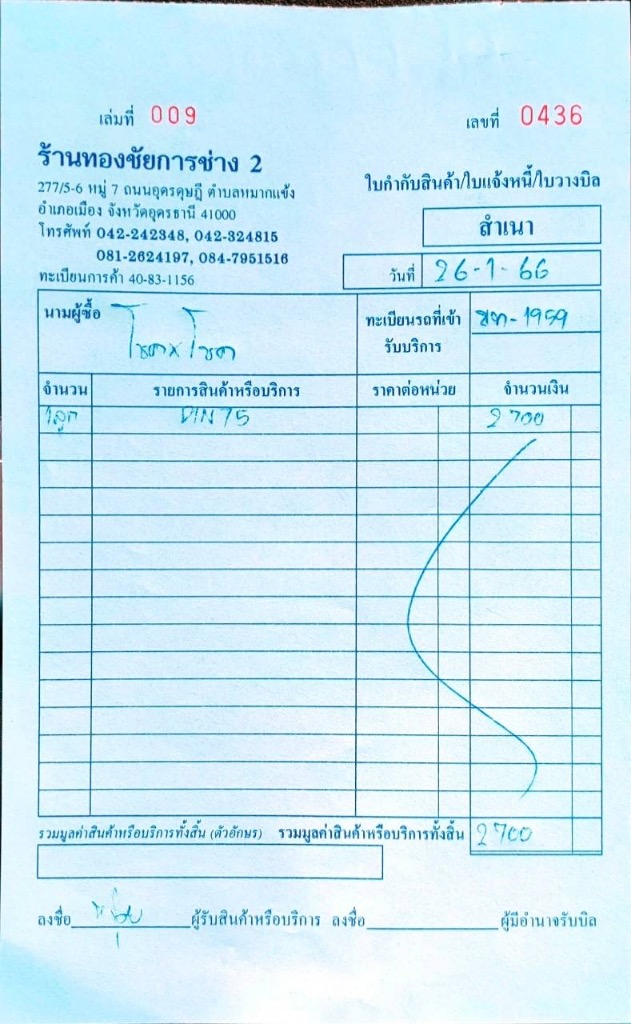 เล่มที่ 009 เลขที่ 0436
ร้านทองชัยการช่าง 2
277/5-6 หมู่ 7 ถนนอุดรดุษฎี ตำบลหมากแข้ง
อำเภอเมือง จังหวัดอุดรธานี 41000
โทรศัพท์ 042-242348, 042-324815
081-2624197, 084-7951516
ทะเบียนการค้า 40-83-1156
ใบกำกับสินค้า/ใบแจ้งหนี้/ใบวางบิล
สำเนา
วันที่ 26-1-66
นามผู้ซื้อ โชคxโชค
ทะเบียนรถที่เข้ารับบริการ -1959
จำนวน รายการสินค้าหรือบริการ ราคาต่อหน่วย จำนวนเงิน
1ลูก DIN 75 2700
รวมมูลค่าสินค้าหรือบริการทั้งสิ้น (ตัวอักษร) รวมมูลค่าสินค้าหรือบริการทั้งสิ้น 2700
ลงชื่อ ผู้รับสินค้าหรือบริการ ลงชื่อ ผู้มีอำนาจรับบิล